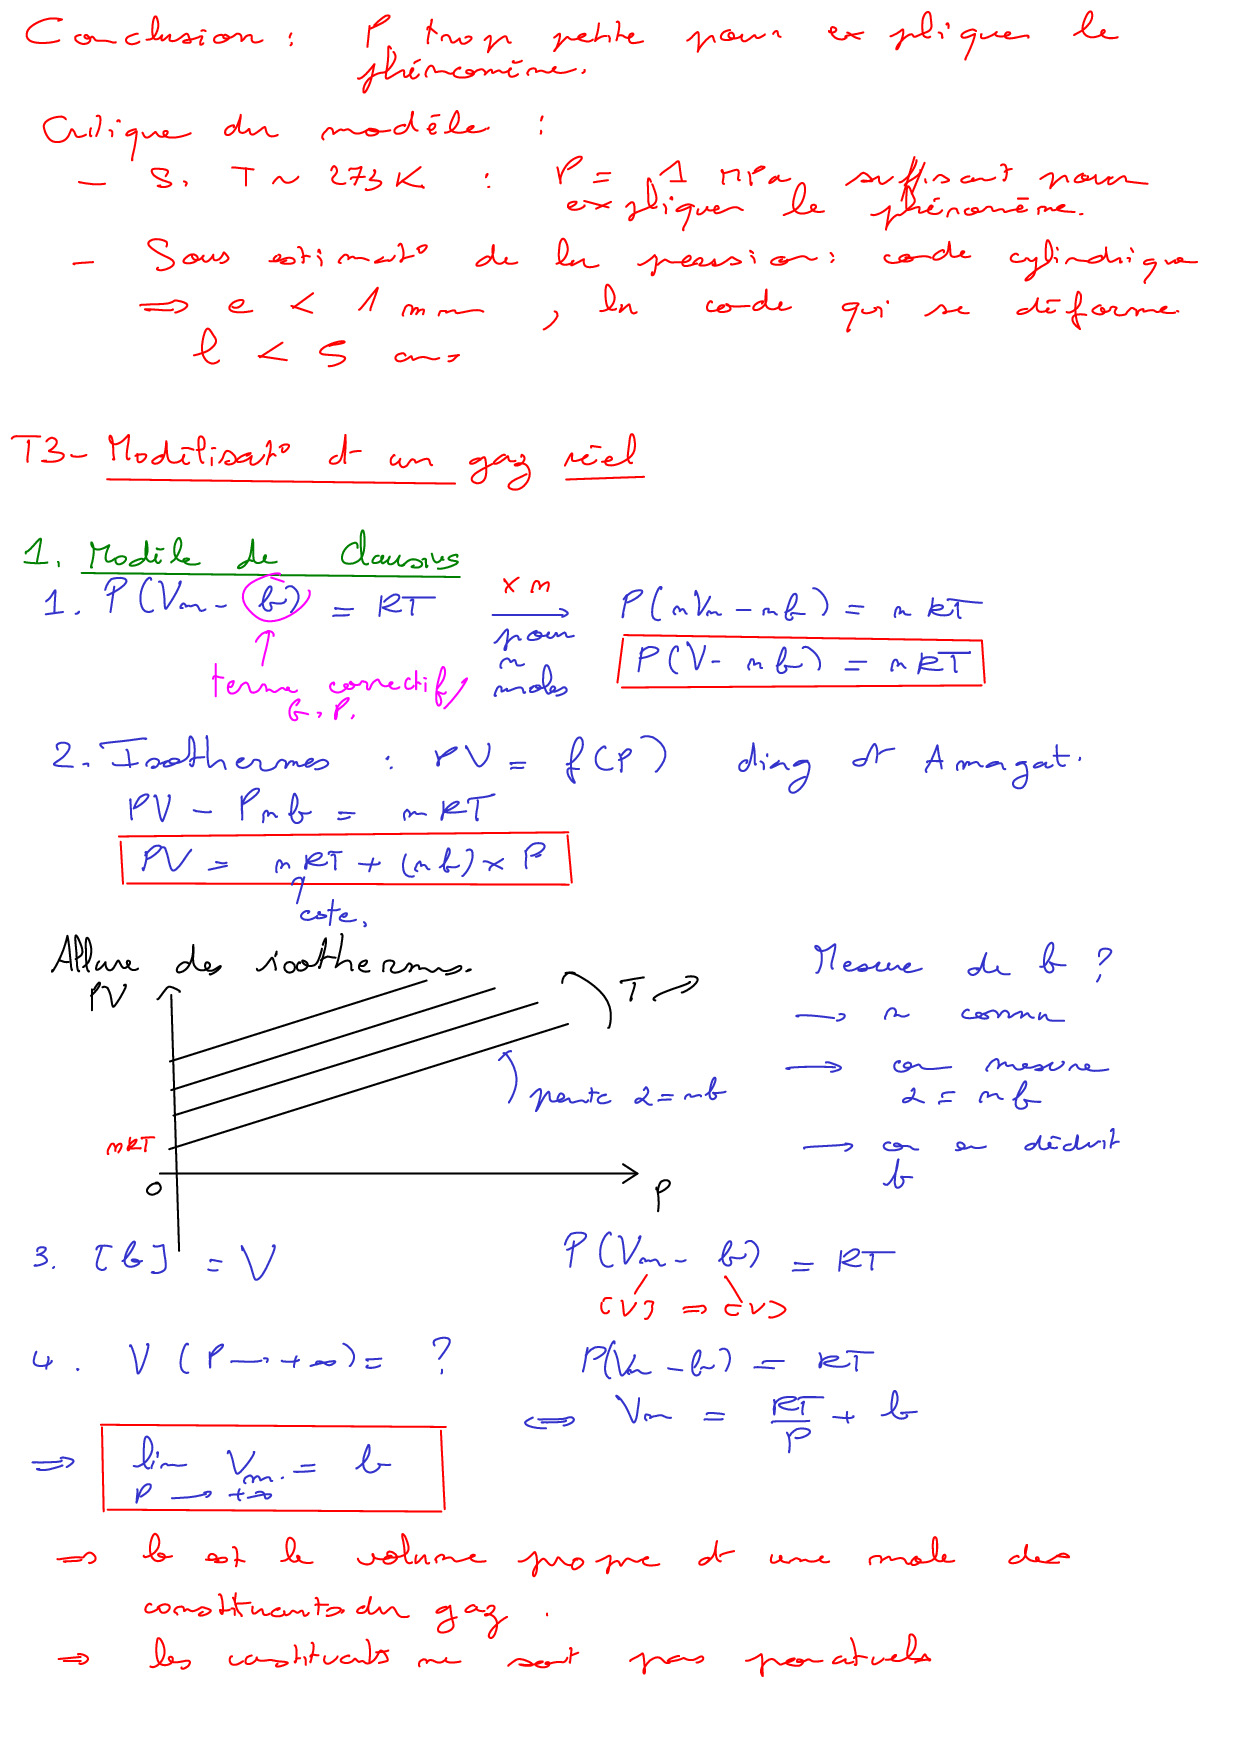 Conclusion : P trop petite pour expliquer le
phénomène.
Critique du modèle :
- Si T ~ 273 K : P = 1 MPa suffisant pour
expliquer le phénomène.
- Sous estimat° de la pression : code cylindrique
=> e < 1 mm, la code qui se déforme
l < 5 cm
T3- Modélisat° d'un gaz réel
1. Modèle de Clausius
1. P(Vm - b) = RT
× n
pour
n
moles
P(nVm - nb) = nRT
P(V - nb) = nRT
terme correctif
G.P.
2. Isothermes : PV = f(P) diag d'Amagat.
PV - Pnb = nRT
PV = nRT + (nb) × P
cste.
Allure des isothermes.
PV
T ↗
pente α = nb
nRT
O
P
Mesure de b ?
→ n connu
→ on mesure
α = nb
→ on en déduit
b
3. [b] = V
P(Vm - b) = RT
[V] = [V]
4. V(P → +∞) = ?
P(Vm - b) = RT
<=> Vm = RT/P + b
=> lim Vm = b
P → +∞
=> b est le volume propre d'une mole des
constituants du gaz.
=> les constituants ne sont pas ponctuels